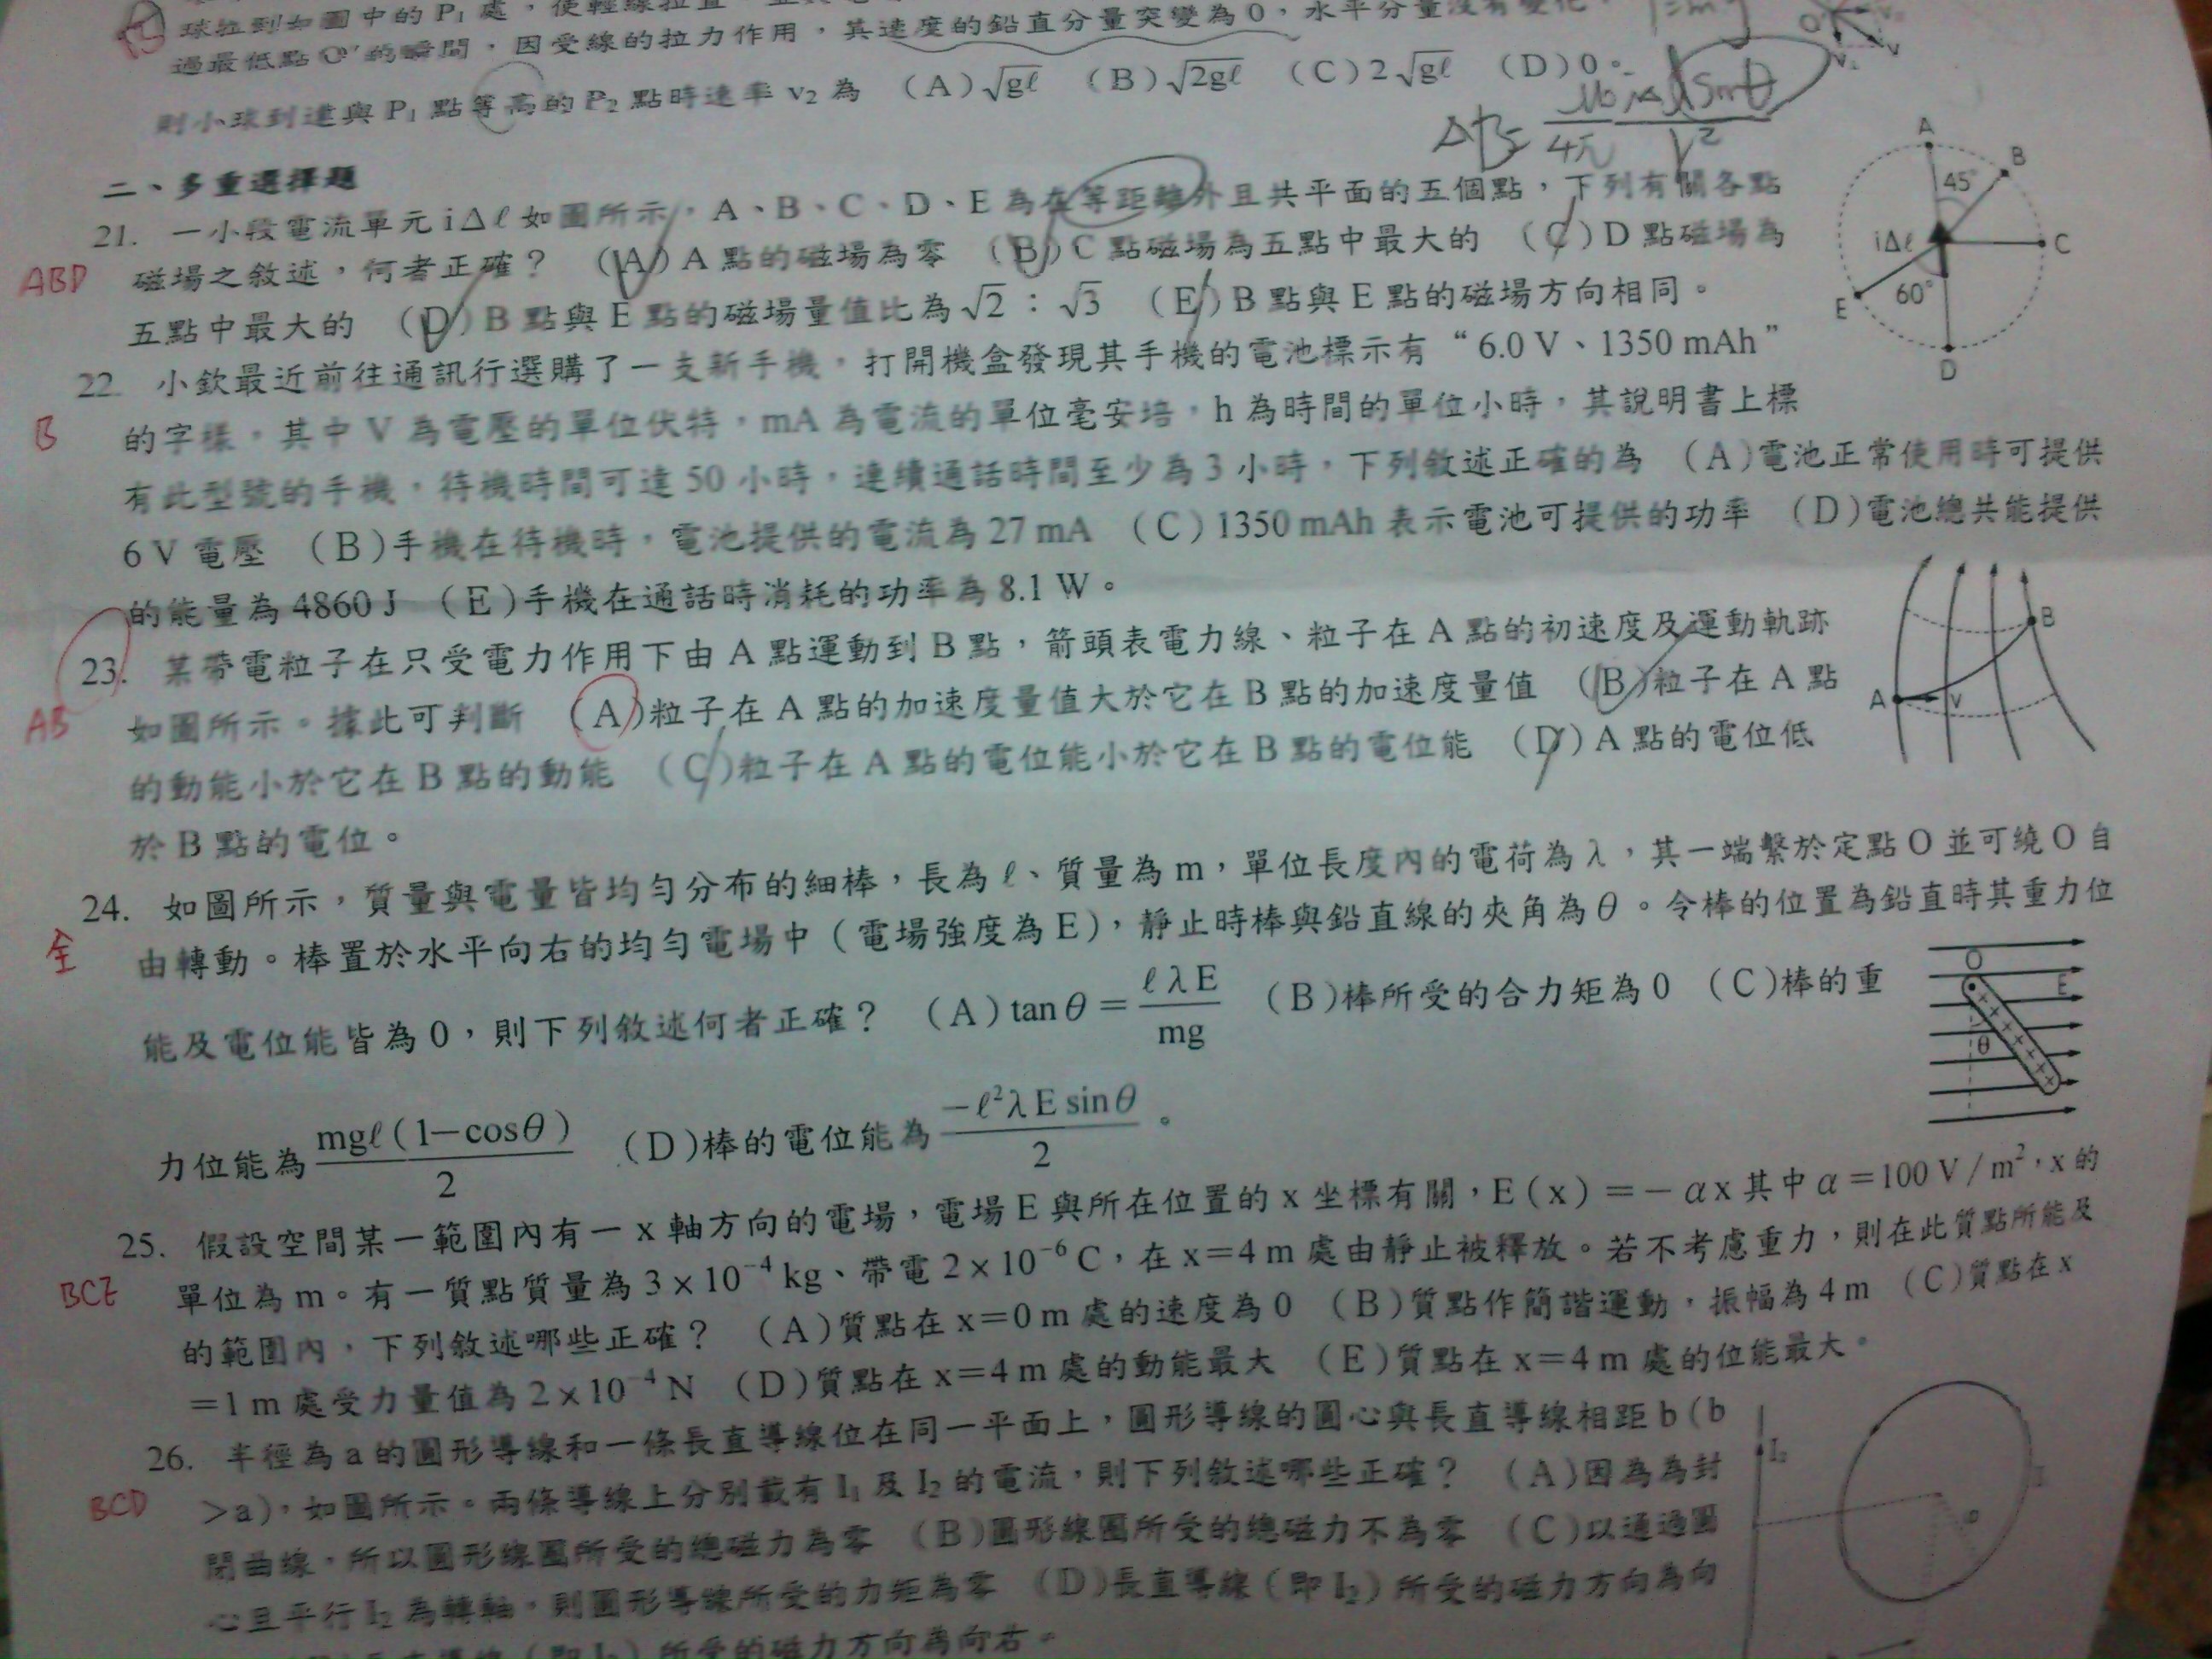 球拉到如圖中的 P₁ 處，使輕線拉直，
過最低點 O' 的瞬間，因受線的拉力作用，其速度的鉛直分量突變為 0，水平分量沒有變化，
則小球到達與 P₁ 點等高的 P₂ 點時速率 v₂ 為 （A）√gℓ （B）√2gℓ （C）2√gℓ （D）0。
二、多重選擇題
21. 一小段電流單元 iΔℓ 如圖所示，A、B、C、D、E 為在等距離外且共平面的五個點，下列有關各點
磁場之敘述，何者正確？ （A）A 點的磁場為零 （B）C 點磁場為五點中最大的 （C）D 點磁場為
五點中最大的 （D）B 點與 E 點的磁場量值比為 √2：√3 （E）B 點與 E 點的磁場方向相同。
ABD
A
B
45°
iΔℓ
C
E
60°
D
22. 小欽最近前往通訊行選購了一支新手機，打開機盒發現其手機的電池標示有“6.0 V、1350 mAh”
的字樣，其中 V 為電壓的單位伏特，mA 為電流的單位毫安培，h 為時間的單位小時，其說明書上標
有此型號的手機，待機時間可達 50 小時，連續通話時間至少為 3 小時，下列敘述正確的為 （A）電池正常使用時可提供
6 V 電壓 （B）手機在待機時，電池提供的電流為 27 mA （C）1350 mAh 表示電池可提供的功率 （D）電池總共能提供
的能量為 4860 J （E）手機在通話時消耗的功率為 8.1 W。
B
23. 某帶電粒子在只受電力作用下由 A 點運動到 B 點，箭頭表電力線、粒子在 A 點的初速度及運動軌跡
如圖所示。據此可判斷 （A）粒子在 A 點的加速度量值大於它在 B 點的加速度量值 （B）粒子在 A 點
的動能小於它在 B 點的動能 （C）粒子在 A 點的電位能小於它在 B 點的電位能 （D）A 點的電位低
於 B 點的電位。
AB
B
A
v
24. 如圖所示，質量與電量皆均勻分布的細棒，長為 ℓ、質量為 m，單位長度內的電荷為 λ，其一端繫於定點 O 並可繞 O 自
由轉動。棒置於水平向右的均勻電場中（電場強度為 E），靜止時棒與鉛直線的夾角為 θ。令棒的位置為鉛直時其重力位
能及電位能皆為 0，則下列敘述何者正確？ （A）tanθ＝ℓλE/mg （B）棒所受的合力矩為 0 （C）棒的重
力位能為 mgℓ(1−cosθ)/2 （D）棒的電位能為 −ℓ²λE sinθ/2。
全
O
E
θ
25. 假設空間某一範圍內有一 x 軸方向的電場，電場 E 與所在位置的 x 坐標有關，E(x)＝−αx 其中 α＝100 V/m²，x 的
單位為 m。有一質點質量為 3×10⁻⁴ kg、帶電 2×10⁻⁶ C，在 x＝4 m 處由靜止被釋放。若不考慮重力，則在此質點所能及
的範圍內，下列敘述哪些正確？ （A）質點在 x＝0 m 處的速度為 0 （B）質點作簡諧運動，振幅為 4 m （C）質點在 x
＝1 m 處受力量值為 2×10⁻⁴ N （D）質點在 x＝4 m 處的動能最大 （E）質點在 x＝4 m 處的位能最大。
BCE
26. 半徑為 a 的圓形導線和一條長直導線位在同一平面上，圓形導線的圓心與長直導線相距 b（b
＞a），如圖所示。兩條導線上分別載有 I₁ 及 I₂ 的電流，則下列敘述哪些正確？ （A）因為為封
閉曲線，所以圓形線圈所受的總磁力為零 （B）圓形線圈所受的總磁力不為零 （C）以通過圓
心且平行 I₂ 為轉軸，則圓形導線所受的力矩為零 （D）長直導線（即 I₂）所受的磁力方向為向
所受的磁力方向為向右。
BCD
I₂